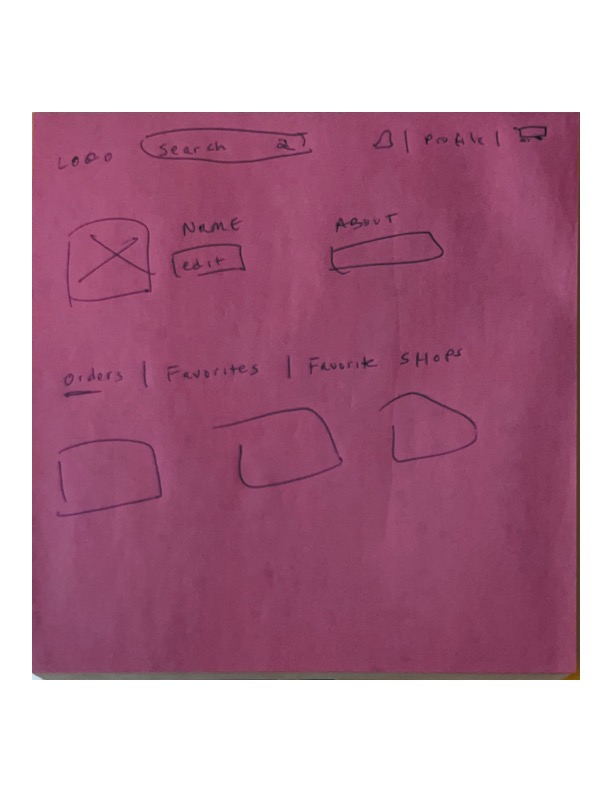 LOGO search | Profile |
NAME ABOUT
edit
Orders | Favorites | Favorite SHOPS